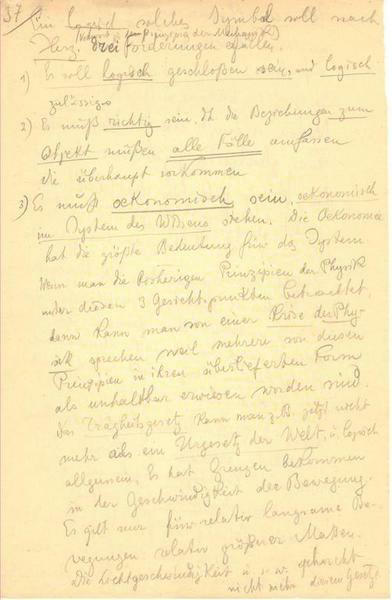 37
Ein logisch solches Symbol soll nach
Herz. drei Forderungen erfüllen.
(Prinzipien der Mechanik)
1) Es soll logisch geschloßen sein, und logisch
zulässig
2) Es muß richtig sein, d.h. die Beziehungen zum
Objekt müßen alle Fälle umfassen
die überhaupt vorkommen
3) Es muß oekonomisch sein, oekonomisch
im System des Wißens stehen. Die Oekonomie
hat die größte Bedeutung für das System
Wenn man die bisherigen Prinzipien der Physik
unter diesen 3 Gesichtspunkten betrachtet,
dann kann man von einer Krise der Phy-
sik sprechen weil mehrere von diesen
Prinzipien in ihren überlieferten Form
als unhaltbar erwiesen worden sind.
Das Trägheitsgesetz kann man z.B. jetzt nicht
mehr als ein Urgesetz der Welt, u. logisch
allgemein. Es hat Grenzen bekommen
in der Geschwindigkeit der Bewegung.
Es gilt nur für relativ langsame Be-
wegungen relativ größerer Massen.
Die Lichtgeschwindigkeit u. s. w. gehorcht
nicht mehr diesem Gesetz